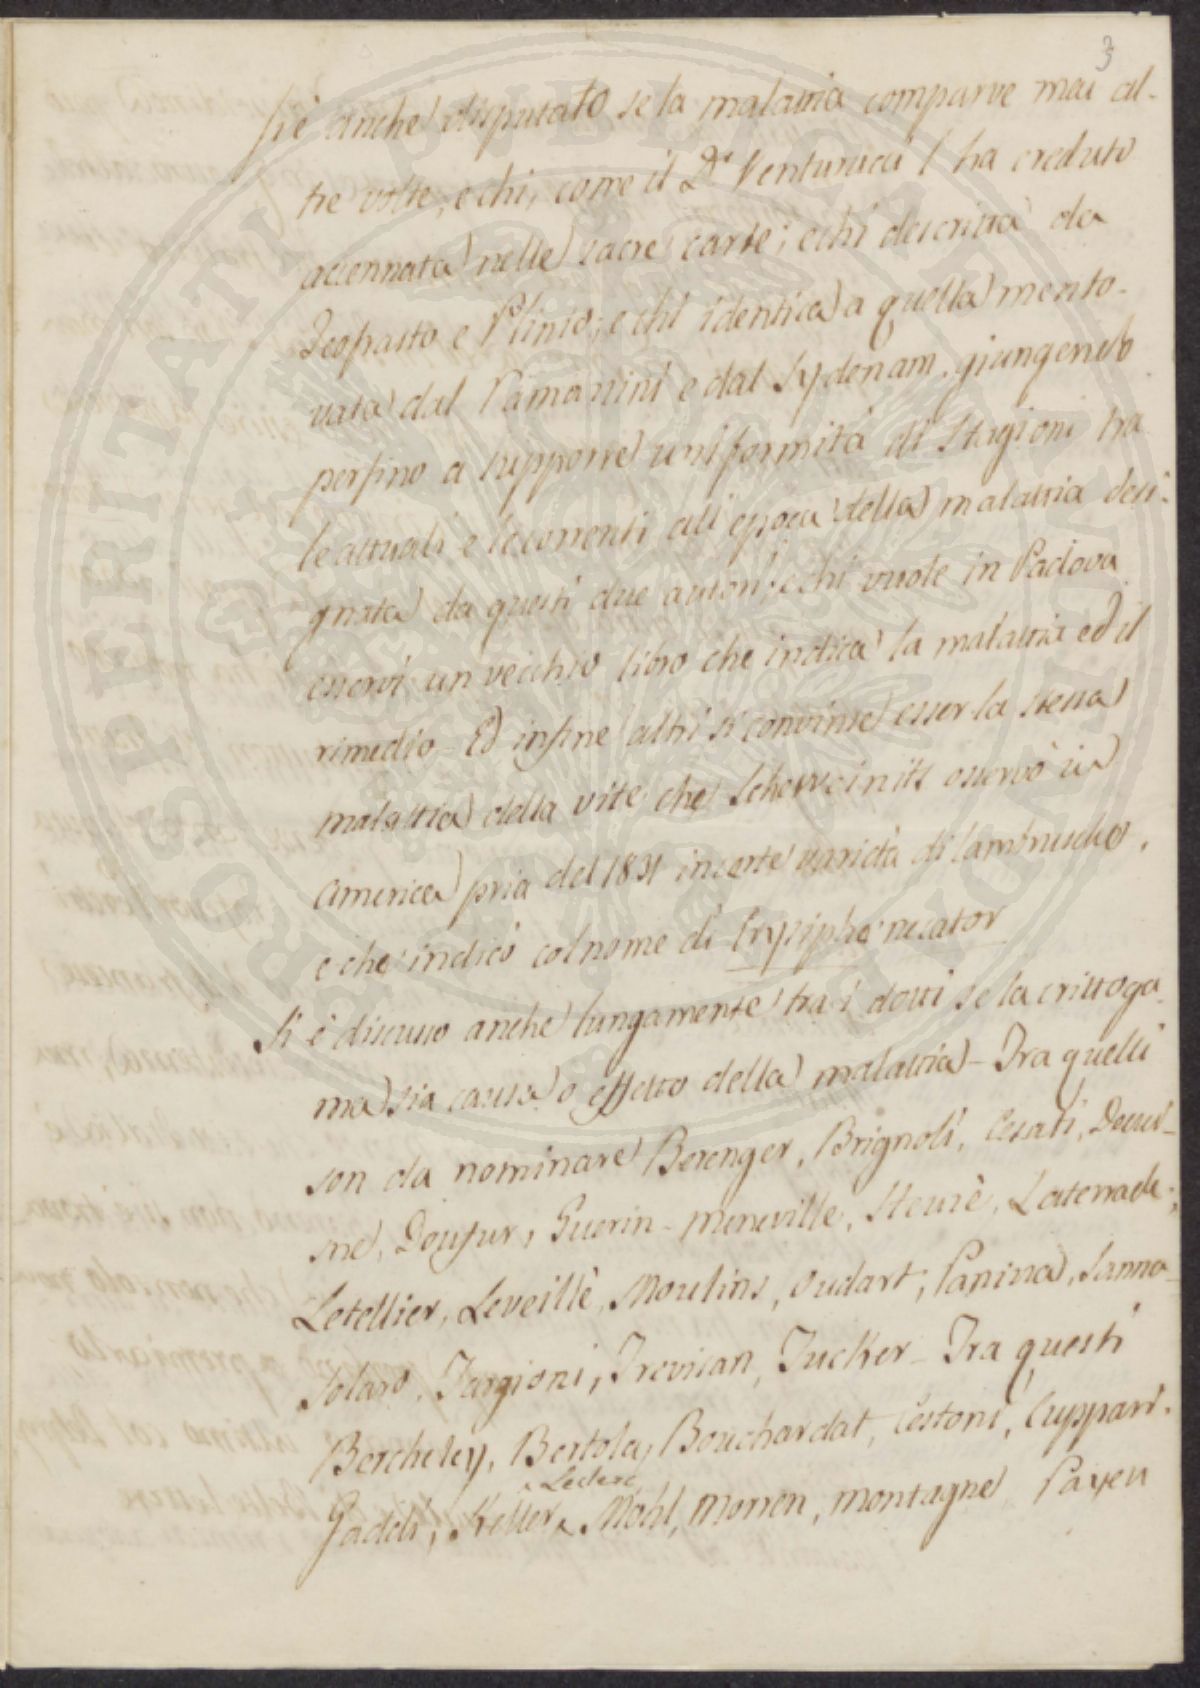 3
Si è anche disputato se la malattia comparve mai al-
tre volte, e chi, come il Dr Venturucci l'ha creduto
accennata nelle sacre carte; e chi descritta da
Teofrasto e Plinio; e chi identica a quella mento-
vata dal Ramazzini e dal Sydenam, giungendo
persino a supporre uniformità di Stagioni tra
le attuali e le correnti all'epoca della malattia desi-
gnata da questi due autori; e chi vuole in Padova
esservi un vecchio libro che indica la malattia ed il
rimedio – Ed infine altri si convinse esser la stessa
malattia della vite che Scheweinits osservò in
America pria del 1831 in certe varietà di lambrusche,
e che indicò col nome di Erysiphe necator
Si è discusso anche lungamente tra i dotti se la crittoga-
ma sia causa o effetto della malattia – Tra quelli
son da nominare Berenger, Brignoli, Cesati, Decais-
sne, Doufur, Guerin-Meneville, Laterrade,
Letellier, Leveillè, Moulins, Oudart, Panizza, Sanna-
Solaro, Targioni, Trevisan, Tucker – Tra questi
Bercheley, Bertola, Bouchardat, Cestoni, Cuppari,
Gaddi, Keller, Mohl, Morren, Montagne Payen
Leclerc
SPERITATI PUBLICAE